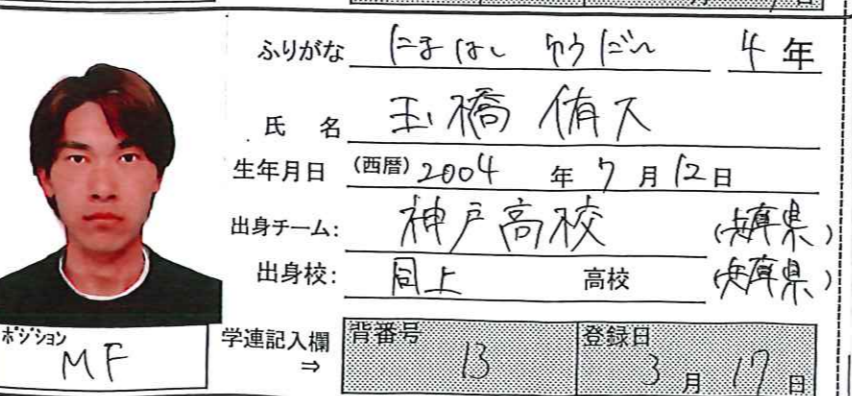 ふりがな たまはし ゆうだい 4年
氏名 玉橋 侑大
生年月日 (西暦) 2004 年 7 月 12 日
出身チーム: 神戸高校 (兵庫県)
出身校: 同上 高校 (兵庫県)
ポジション 学連記入欄 背番号 登録日
MF ⇒ 13 3 月 17 日